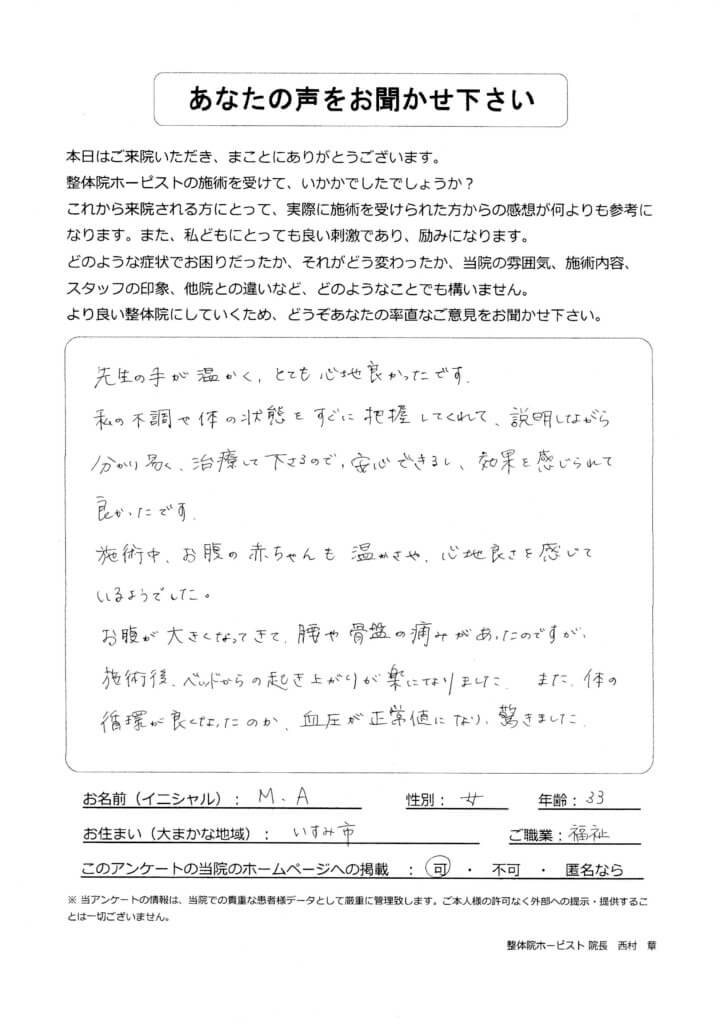 あなたの声をお聞かせ下さい
本日はご来院いただき、まことにありがとうございます。
整体院ホーピストの施術を受けて、いかかでしたでしょうか？
これから来院される方にとって、実際に施術を受けられた方からの感想が何よりも参考に
なります。また、私どもにとっても良い刺激であり、励みになります。
どのような症状でお困りだったか、それがどう変わったか、当院の雰囲気、施術内容、
スタッフの印象、他院との違いなど、どのようなことでも構いません。
より良い整体院にしていくため、どうぞあなたの率直なご意見をお聞かせ下さい。
先生の手が温かく、とても心地良かったです。
私の不調や体の状態をすぐに把握してくれて、説明しながら
分かり易く、治療して下さるので、安心できるし、効果を感じられて
良かったです。
施術中、お腹の赤ちゃんも温かさや、心地良さを感じて
いるようでした。
お腹が大きくなってきて、腰や骨盤の痛みがあったのですが、
施術後、ベッドからの起き上がりが楽になりました。また、体の
循環が良くなったのか、血圧が正常値になり、驚きました。
お名前（イニシャル）： M.A 性別： 女 年齢： 33
お住まい（大まかな地域）： いすみ市 ご職業： 福祉
このアンケートの当院のホームページへの掲載 ： 可 ・ 不可 ・ 匿名なら
※ 当アンケートの情報は、当院での貴重な患者様データとして厳重に管理致します。ご本人様の許可なく外部への提示・提供するこ
とは一切ございません。
整体院ホーピスト 院長 西村 章